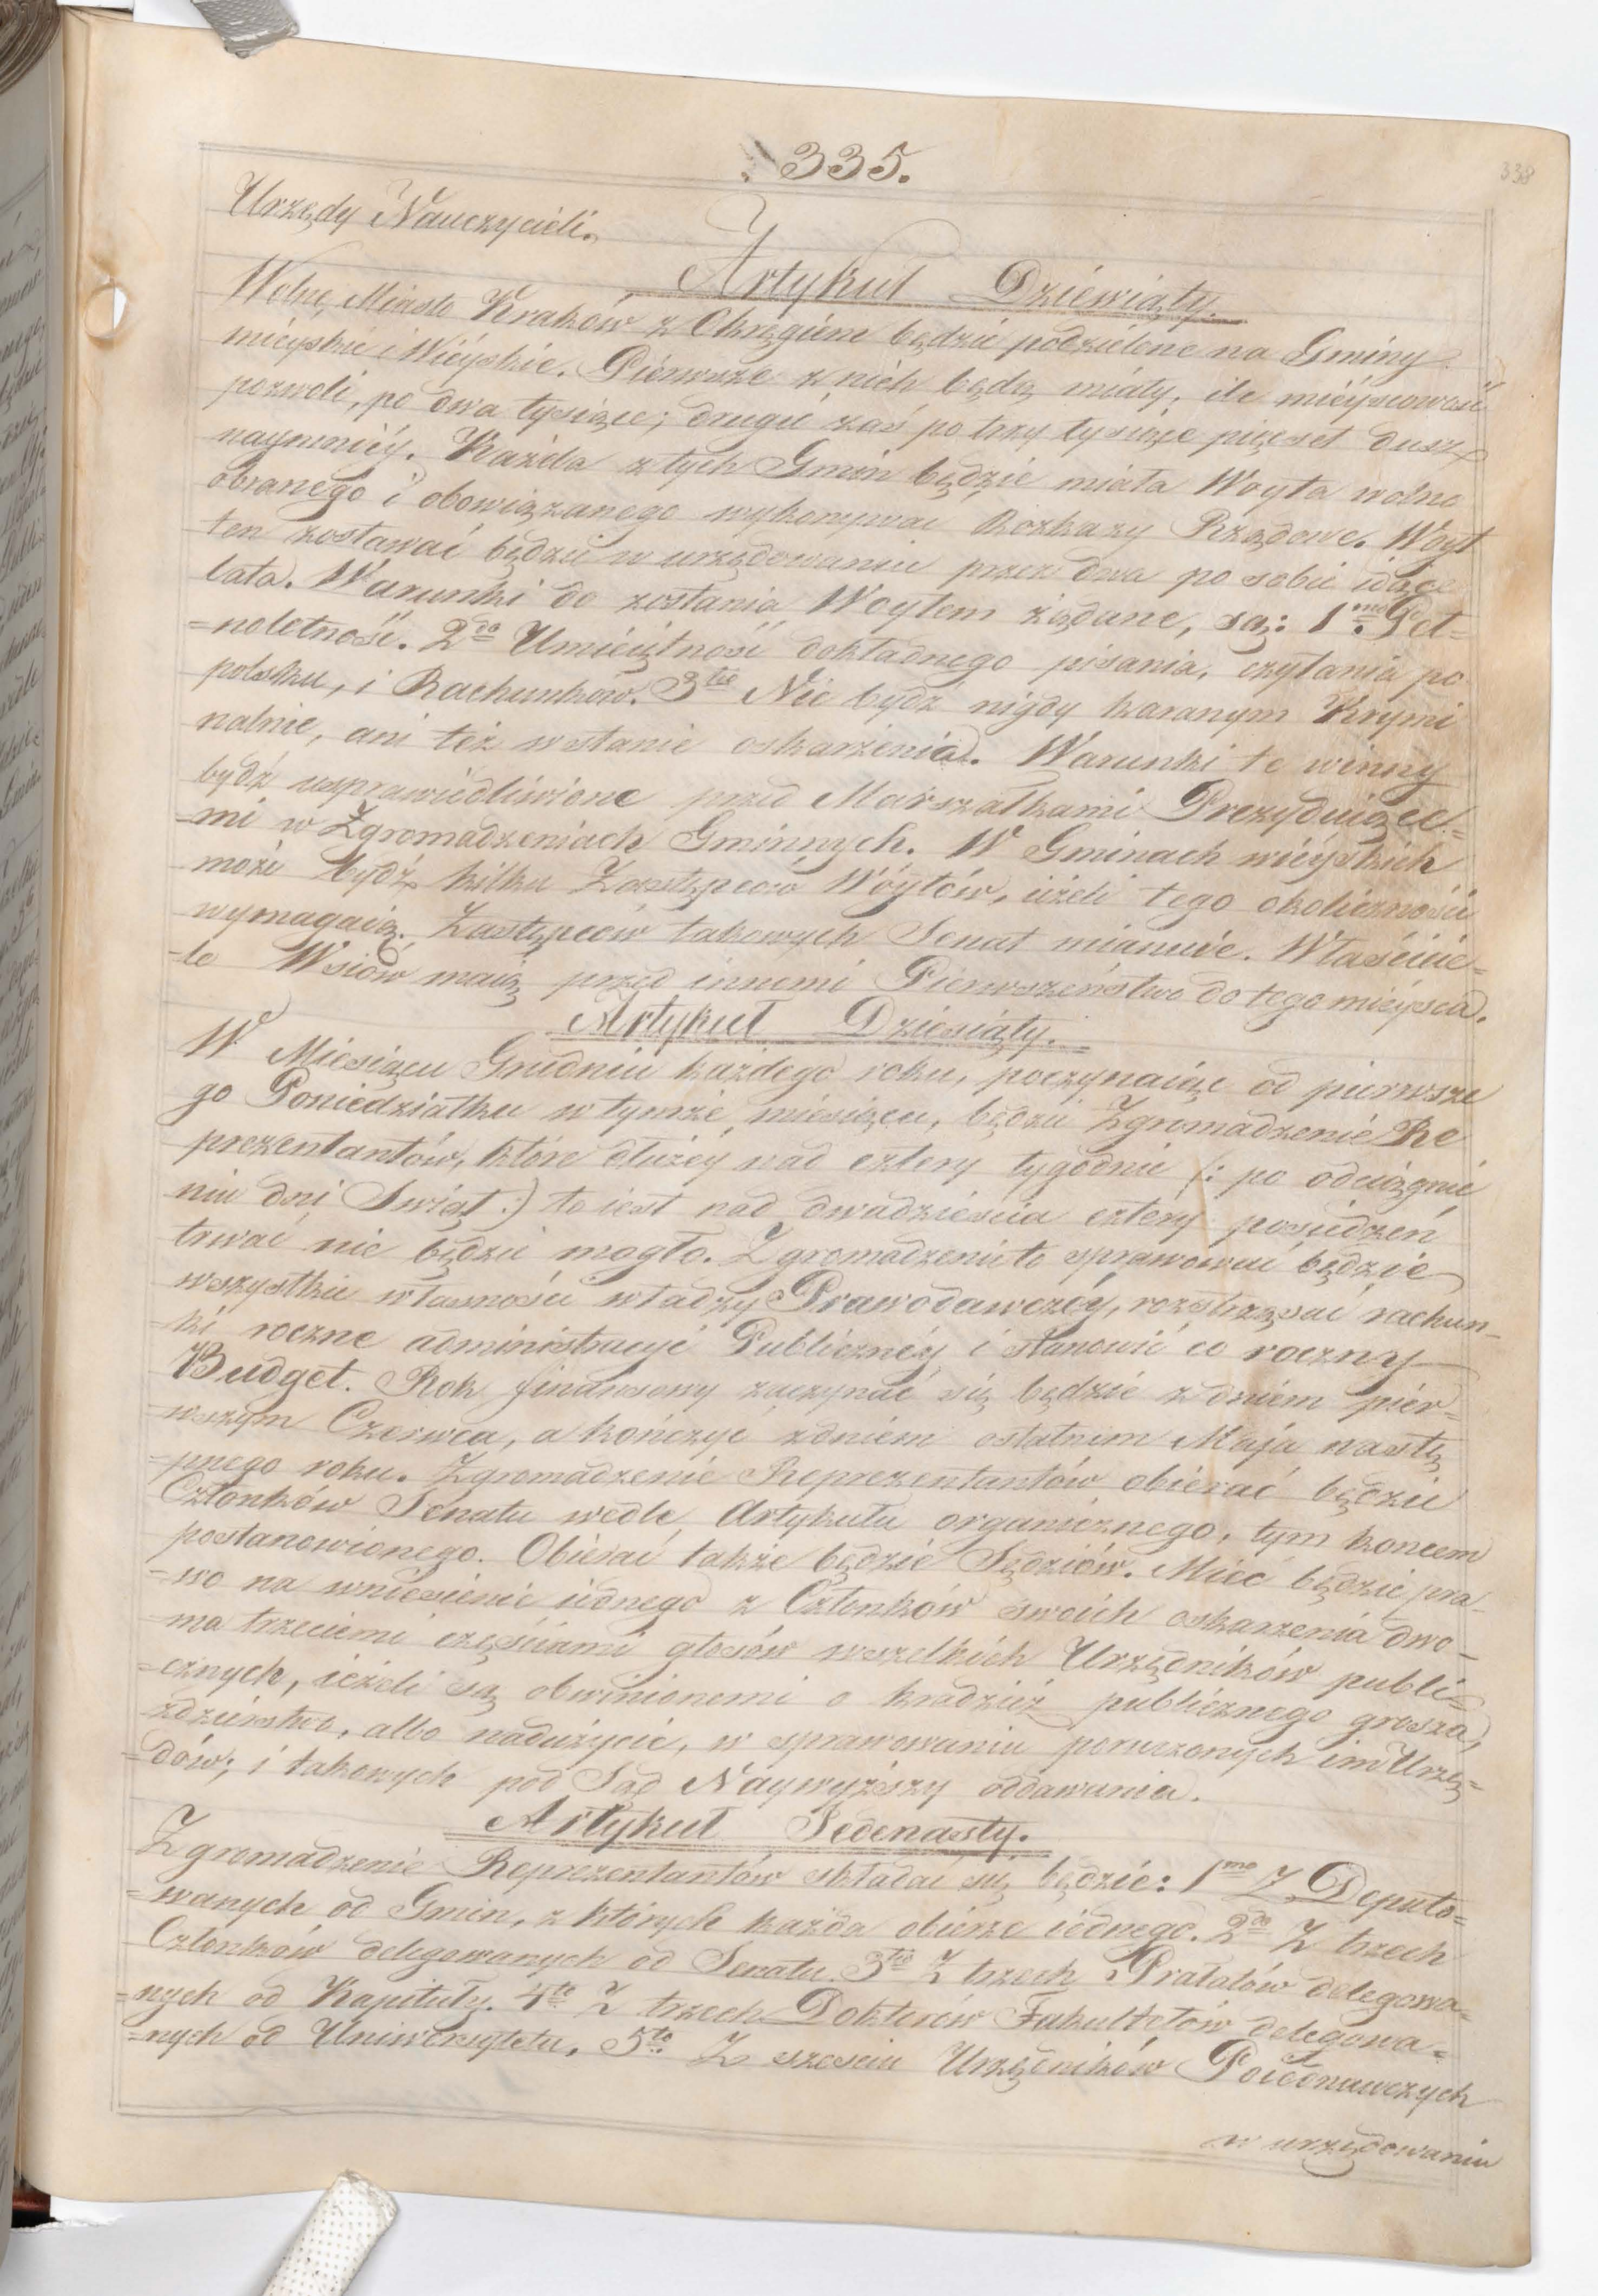 335.
338
Urzędy Nauczycieli.
Artykuł Dziéwiąty.
Wolne, Miasto Kraków z Okręgiem będzie podzielone na Gminy
mieyskie i Wiéyskie. Piérwsze z nich będą miały, ile miéyscowość
pozwoli, po dwa tysiące; drugie zaś po trzy tysiące pięćset dusz
naymniéy. Każda z tych Gmin będzie miała Woyta wolno
obranego i obowiązanego wykonywać Rozkazy Rządowe. Wóyt
ten zostawać będzie w urzędowaniu przez dwa po sobie idące
lata. Warunki do zostania Woytem żądane, są: 1mo Peł=
=noletność. 2do Umieiętność dokładnego pisania, czytania po
polsku, i Rachunków. 3tio Nie bydź nigdy karanym Krymi
nalnie, ani też w stanie oskarżenia. Warunki te winny
bydź usprawiedliwione przed Marszałkami Prezyduiące=
=mi w Zgromadzeniach Gminnych. W Gminach wiéyskich
może bydź kilku Zastępców Wóytów, ieżeli tego okoliczności
wymagaią. Zastępców takowych Senat mianuie. Właścicie=
=le Wsiów maią przed innemi Pierwszeństwo do tego miéysca.
Artykuł Dziesiąty.
W Miesiącu Grudniu każdego roku, poczynaiąc od pierwsze
go Poniedziałku w tymże miesiącu, będzie Zgromadzenie Re
prezentantów, które dłużéy nad cztery tygodnie (: po odciągnie
niu dni Swiąt :) to iest nad dwadzieścia cztery posiedzeń
trwać nie będzie mogło. Zgromadzenie to sprawować będzie
wszystkie własności władzy Prawodawczéy, roztrząsać rachun=
=ki roczne administracyi Publicznéy i stanowić co roczny
Budget. Rok finansowy zaczynać się będzie z dniem pier=
=wszym Czerwca, a kończyć z dniem ostatnim Maja nastę
=pnego roku. Zgromadzenie Reprezentantów obierać będzie
Członków Senatu wedle Artykułu organicznego, tym końcem
postanowionego. Obierać także będzie Sędziów. Mieć będzie pra=
=wo na wniesienie iednego z Członków swoich oskarżenia dwo=
ma trzeciemi częściami głosów wszelkich Urzędników publi=
=cznych, ieżeli są obwinionemi o kradzież publicznego grosza,
zdzierstwo, albo nadużycie, w sprawowaniu poruczonych im Urzę=
=dów; i takowych pod Sąd Naywyższy oddawania.
Artykuł Jedenasty.
Zgromadzenie Reprezentantów składać się będzie: 1mo Z Deputo=
=wanych od Gmin, z których każda obierze iednego. 2do Z trzech
Członków delegowanych od Senatu. 3tio Z trzech Prałatów delegowa=
=nych od Kapituły. 4to Z trzech Doktorów Fakultetów delegowa=
=nych od Uniwersytetu. 5to Z sześciu Urzędników Poiednawczych
w urzędowaniu